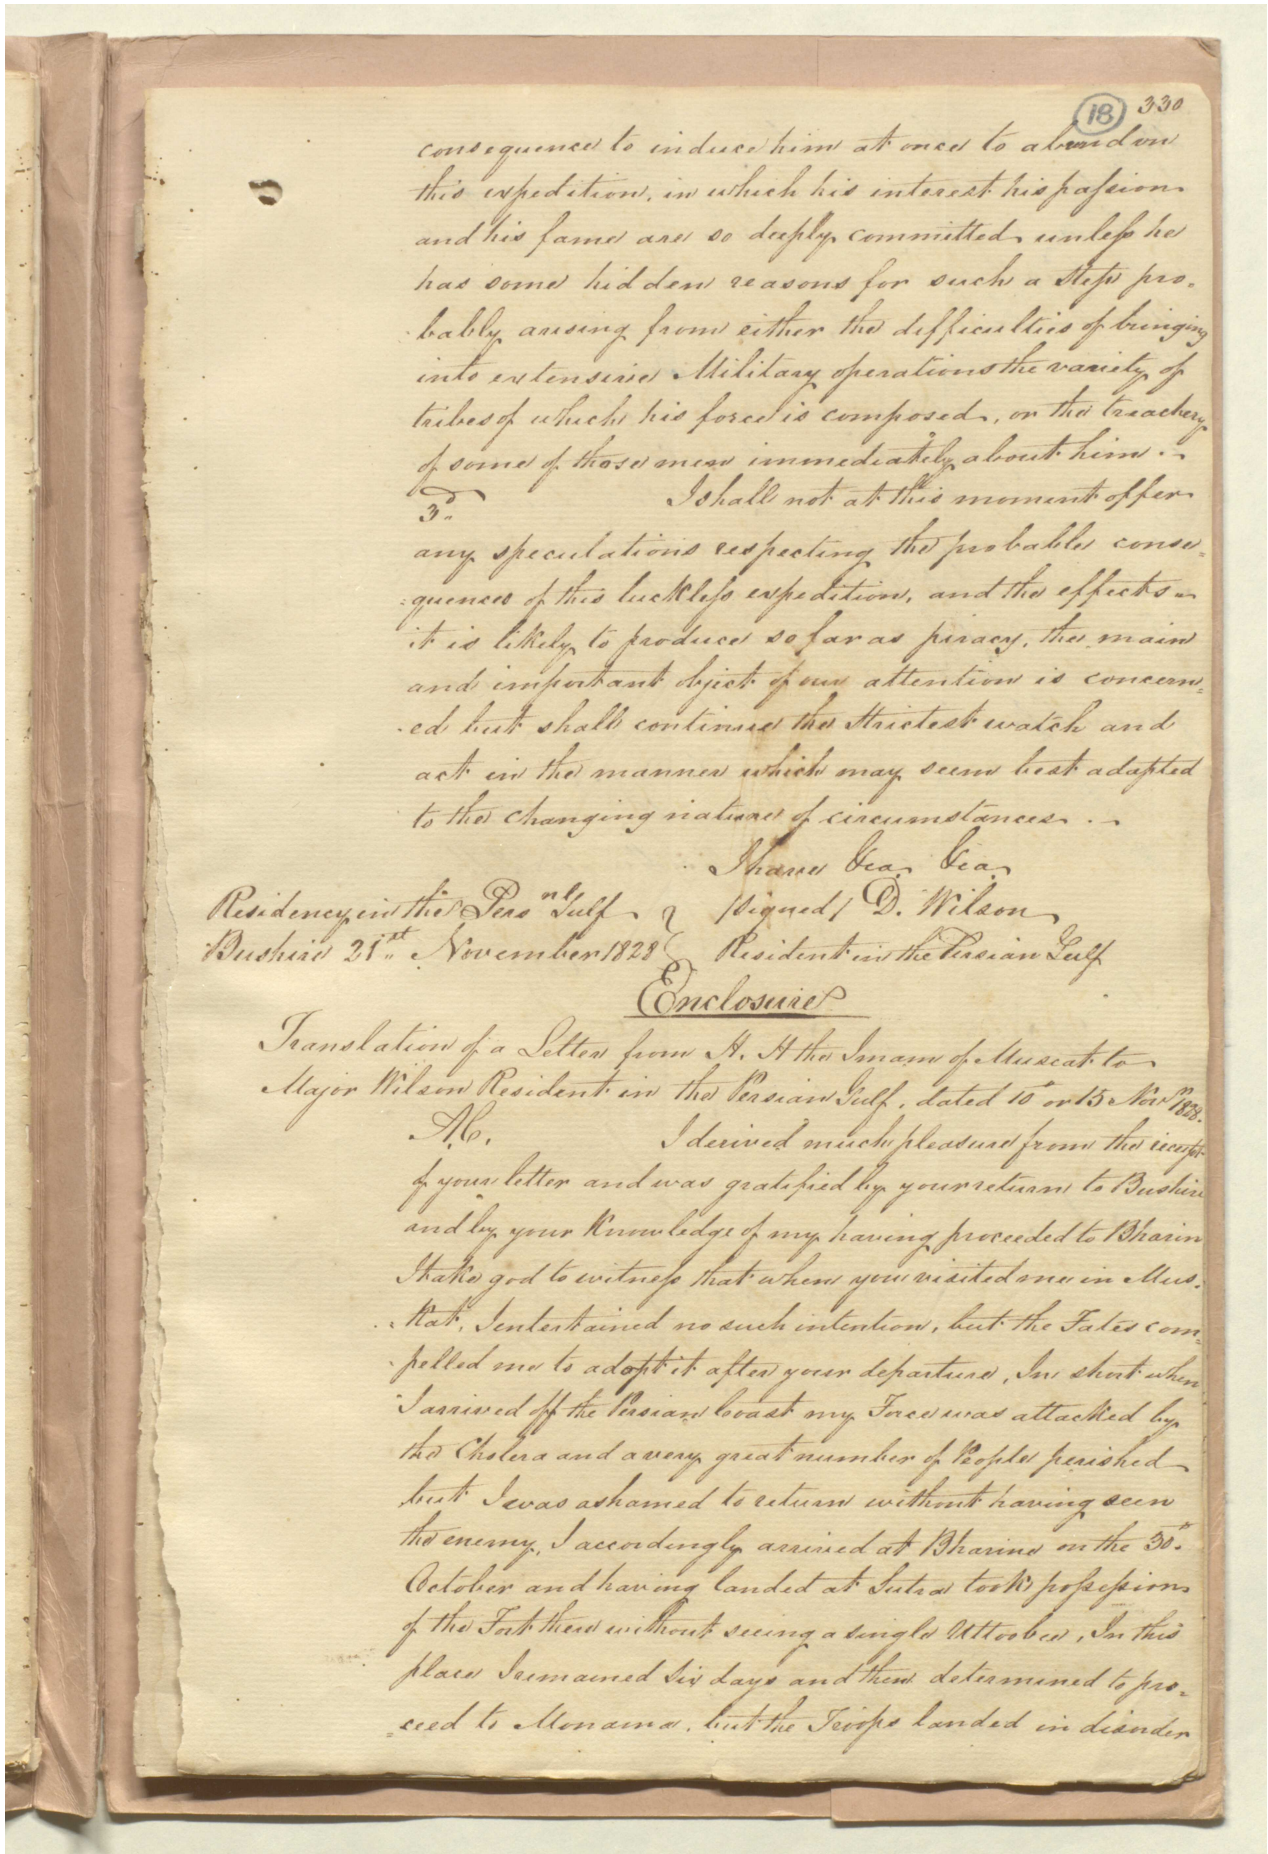 18 330
consequence to induce him at once to abandon
this expedition, in which his interest his passion
and his fame are so deeply committed unless he
has some hidden reasons for such a step pro-
bably arising from either the difficulties of bringing
into extensive Military operations the variety of
tribes of which his force is composed, or the treachery
of some of those men immediately about him.
3. I shall not at this moment offer
any speculations respecting the probable conse=
=quences of this luckless expedition, and the effects
it is likely to produce so far as piracy, the main
and important object of our attention is concern=
ed but shall continue the strictest watch and
act in the manner which may seem best adapted
to the changing nature of circumstances.
I have &ca. &ca.
Residency in the Pers.nl Gulf } /signed/ D. Wilson
Bushire 21st November 1828 } Resident in the Persian Gulf
Enclosure
Translation of a Letter from H. H the Imam of Muscat to
Major Wilson Resident in the Persian Gulf, dated 10th or 15 Novr 1828.
A.C. I derived much pleasure from the receipt
of your letter and was gratified by your return to Bushire
and by your Knowledge of my having proceeded to Bharin
I take god to witness that when you visited me in Mus-
Kat, I entertained no such intention, but the Fates com=
pelled me to adopt it after your departure, In short when
I arrived off the Persian Coast my Force was attacked by
the Cholera and a very great number of People perished
but I was ashamed to return without having seen
the enemy, I accordingly arrived at Bharine on the 30th
October and having landed at Sutra took possession
of the Fort there without seeing a single Uttoobee, In this
place I remained Six days and then determined to pro-
=ceed to Monama, but the Troops landed in disorder